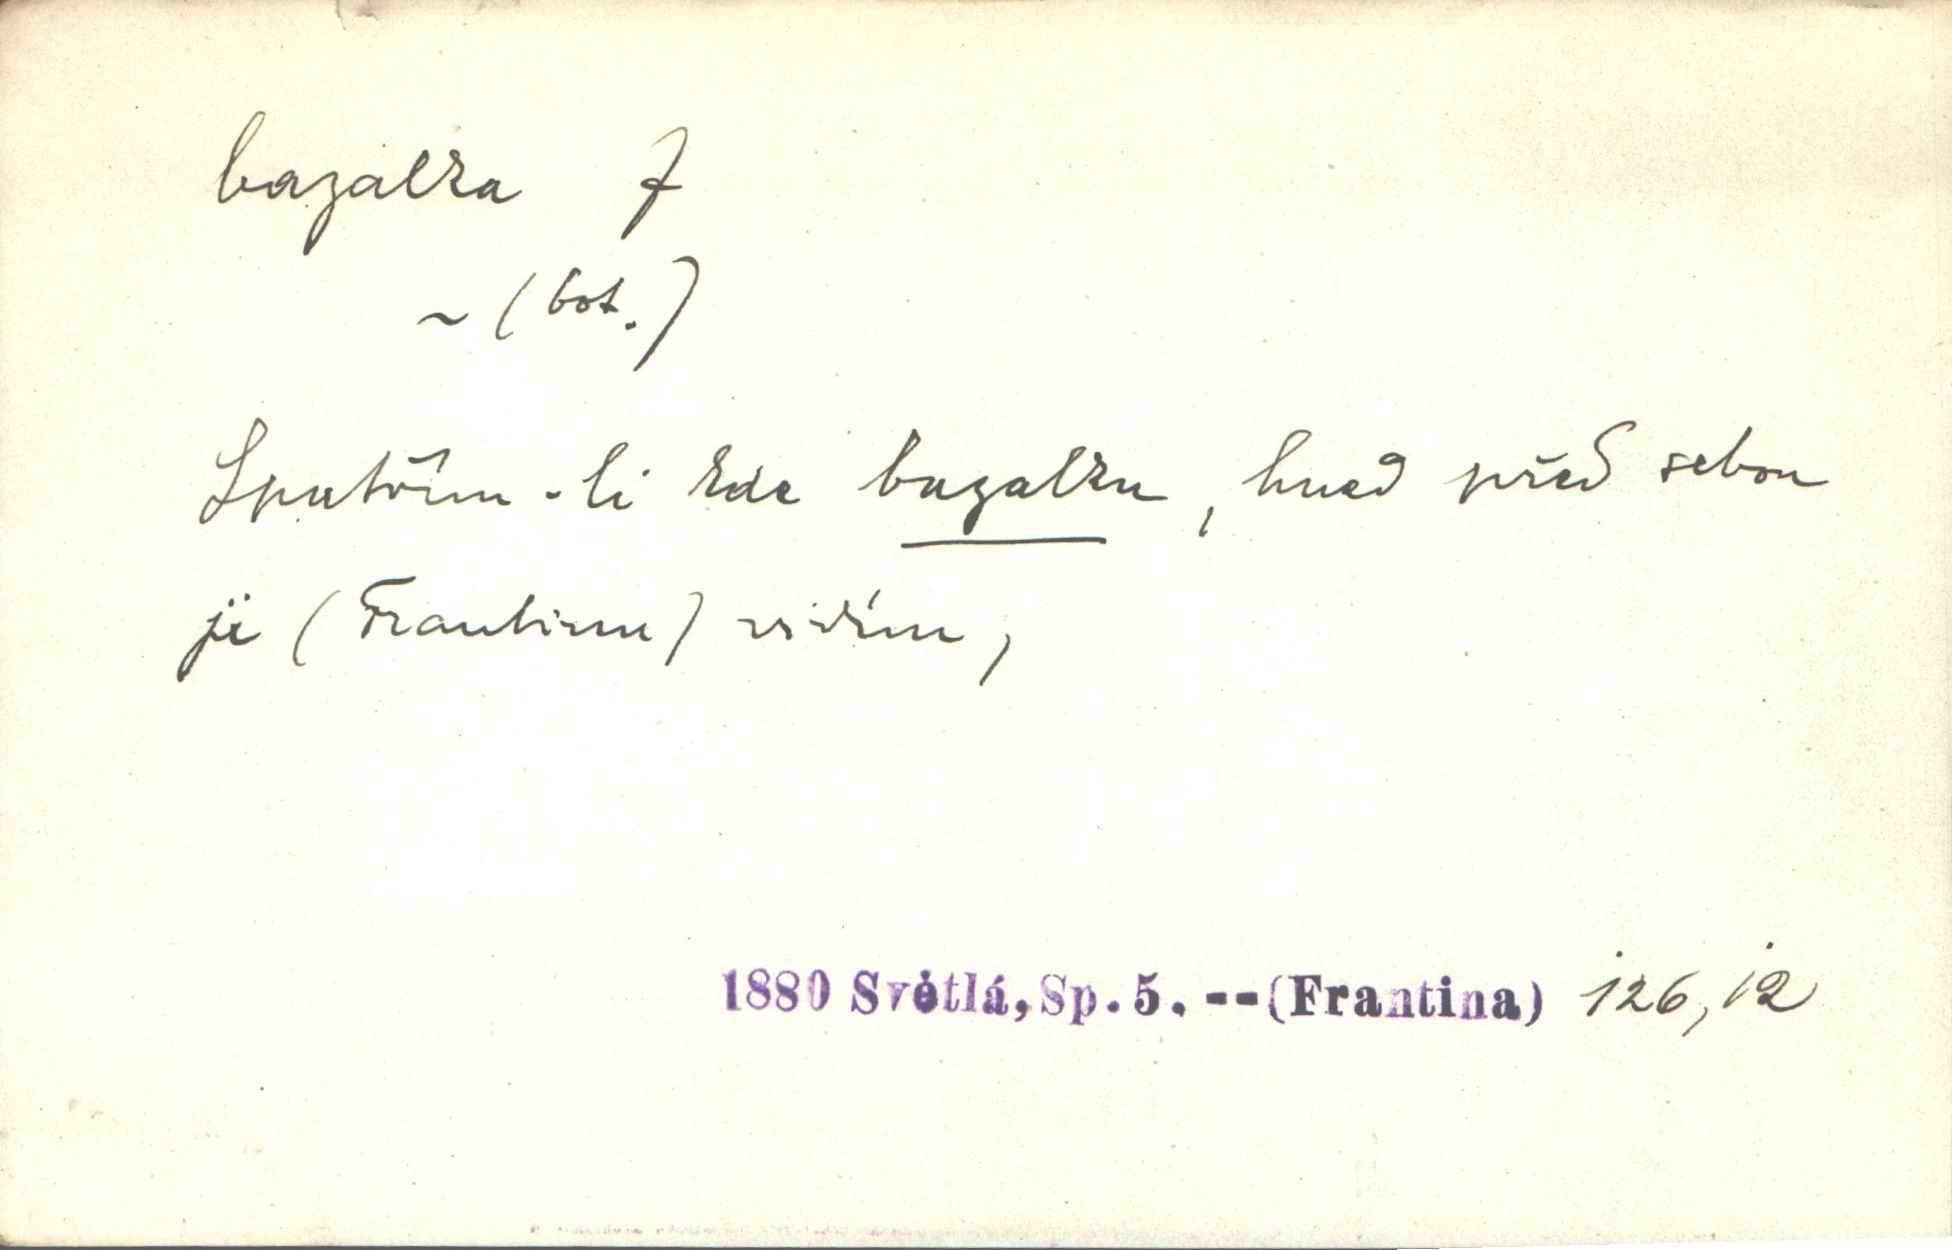 bazalka f
~ (bot.)
Spatřím-li kde bazalku, hned před sebou
ji (Frantinu) vidím,
1880 Světlá, Sp. 5. -- (Frantina) 126, 12